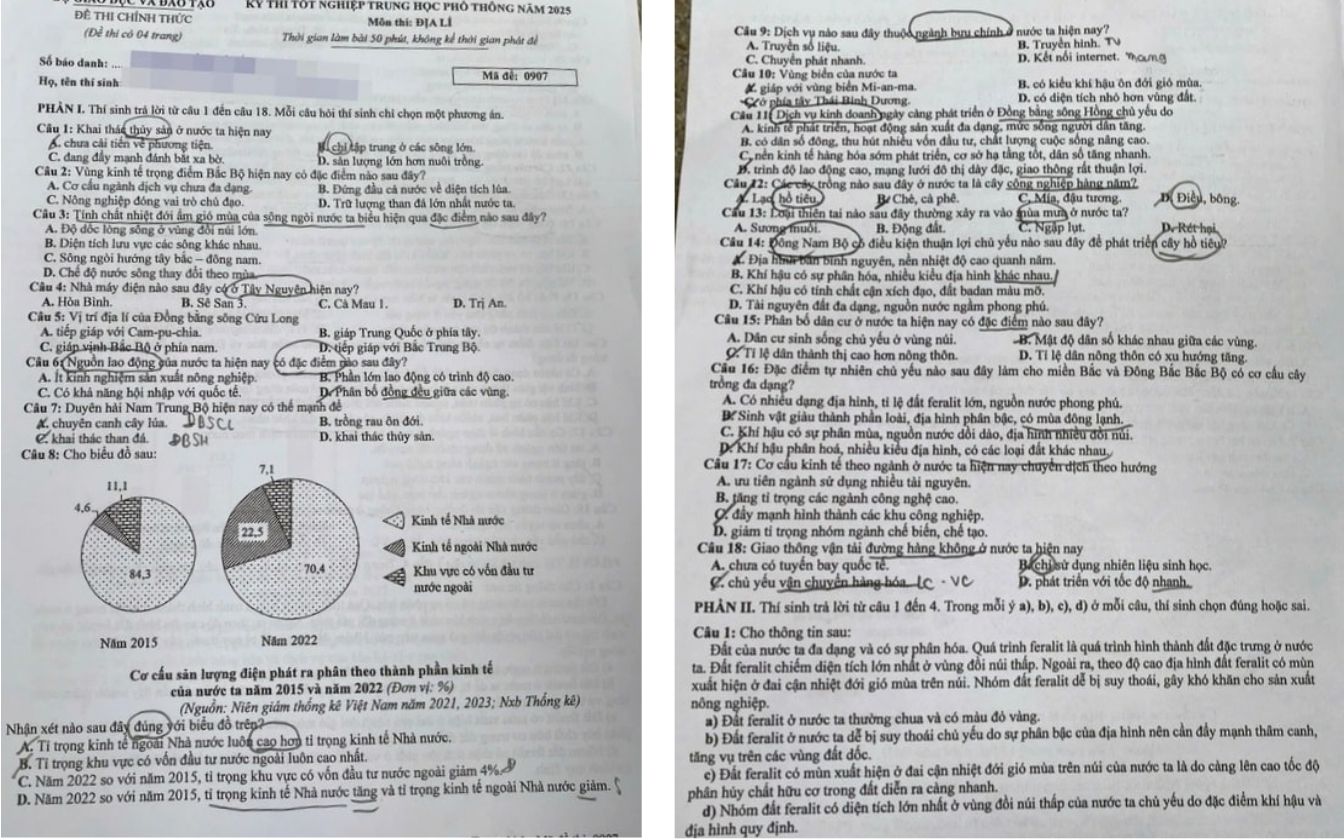 GIÁO DỤC VÀ ĐÀO TẠO
KỲ THI TỐT NGHIỆP TRUNG HỌC PHỔ THÔNG NĂM 2025
ĐỀ THI CHÍNH THỨC
Môn thi: ĐỊA LÍ
(Đề thi có 04 trang)
Thời gian làm bài 50 phút, không kể thời gian phát đề
Số báo danh: ....
Họ, tên thí sinh
Mã đề: 0907
PHẦN I. Thí sinh trả lời từ câu 1 đến câu 18. Mỗi câu hỏi thí sinh chỉ chọn một phương án.
Câu 1: Khai thác thủy sản ở nước ta hiện nay
A. chưa cải tiến về phương tiện. B. chỉ tập trung ở các sông lớn.
C. đang đẩy mạnh đánh bắt xa bờ. D. sản lượng lớn hơn nuôi trồng.
Câu 2: Vùng kinh tế trọng điểm Bắc Bộ hiện nay có đặc điểm nào sau đây?
A. Cơ cấu ngành dịch vụ chưa đa dạng. B. Đứng đầu cả nước về diện tích lúa.
C. Nông nghiệp đóng vai trò chủ đạo. D. Trữ lượng than đá lớn nhất nước ta.
Câu 3: Tính chất nhiệt đới ẩm gió mùa của sông ngòi nước ta biểu hiện qua đặc điểm nào sau đây?
A. Độ dốc lòng sông ở vùng đồi núi lớn.
B. Diện tích lưu vực các sông khác nhau.
C. Sông ngòi hướng tây bắc – đông nam.
D. Chế độ nước sông thay đổi theo mùa.
Câu 4: Nhà máy điện nào sau đây có ở Tây Nguyên hiện nay?
A. Hòa Bình. B. Sê San 3. C. Cà Mau 1. D. Trị An.
Câu 5: Vị trí địa lí của Đồng bằng sông Cửu Long
A. tiếp giáp với Cam-pu-chia. B. giáp Trung Quốc ở phía tây.
C. giáp vịnh Bắc Bộ ở phía nam. D. tiếp giáp với Bắc Trung Bộ.
Câu 6: Nguồn lao động của nước ta hiện nay có đặc điểm nào sau đây?
A. Ít kinh nghiệm sản xuất nông nghiệp. B. Phần lớn lao động có trình độ cao.
C. Có khả năng hội nhập với quốc tế. D. Phân bố đồng đều giữa các vùng.
Câu 7: Duyên hải Nam Trung Bộ hiện nay có thế mạnh để
A. chuyên canh cây lúa. ĐBSCL B. trồng rau ôn đới.
C. khai thác than đá. ĐBSH D. khai thác thủy sản.
Câu 8: Cho biểu đồ sau:
7,1
11,1
4,6
22,5
84,3
70,4
Kinh tế Nhà nước
Kinh tế ngoài Nhà nước
Khu vực có vốn đầu tư
nước ngoài
Năm 2015
Năm 2022
Cơ cấu sản lượng điện phát ra phân theo thành phần kinh tế
của nước ta năm 2015 và năm 2022 (Đơn vị: %)
(Nguồn: Niên giám thống kê Việt Nam năm 2021, 2023; Nxb Thống kê)
Nhận xét nào sau đây đúng với biểu đồ trên?
A. Tỉ trọng kinh tế ngoài Nhà nước luôn cao hơn tỉ trọng kinh tế Nhà nước.
B. Tỉ trọng khu vực có vốn đầu tư nước ngoài luôn cao nhất.
C. Năm 2022 so với năm 2015, tỉ trọng khu vực có vốn đầu tư nước ngoài giảm 4%. Đ
D. Năm 2022 so với năm 2015, tỉ trọng kinh tế Nhà nước tăng và tỉ trọng kinh tế ngoài Nhà nước giảm. S
Câu 9: Dịch vụ nào sau đây thuộc ngành bưu chính ở nước ta hiện nay?
A. Truyền số liệu. B. Truyền hình. TV
C. Chuyển phát nhanh. D. Kết nối internet. mạng
Câu 10: Vùng biển của nước ta
A. giáp với vùng biển Mi-an-ma. B. có kiểu khí hậu ôn đới gió mùa.
C. ở phía tây Thái Bình Dương. D. có diện tích nhỏ hơn vùng đất.
Câu 11: Dịch vụ kinh doanh ngày càng phát triển ở Đồng bằng sông Hồng chủ yếu do
A. kinh tế phát triển, hoạt động sản xuất đa dạng, mức sống người dân tăng.
B. có dân số đông, thu hút nhiều vốn đầu tư, chất lượng cuộc sống nâng cao.
C. nền kinh tế hàng hóa sớm phát triển, cơ sở hạ tầng tốt, dân số tăng nhanh.
D. trình độ lao động cao, mạng lưới đô thị dày đặc, giao thông rất thuận lợi.
Câu 12: Các cây trồng nào sau đây ở nước ta là cây công nghiệp hàng năm?
A. Lạc, hồ tiêu. B. Chè, cà phê. C. Mía, đậu tương. D. Điều, bông.
Câu 13: Loại thiên tai nào sau đây thường xảy ra vào mùa mưa ở nước ta?
A. Sương muối. B. Động đất. C. Ngập lụt. D. Rét hại.
Câu 14: Đông Nam Bộ có điều kiện thuận lợi chủ yếu nào sau đây để phát triển cây hồ tiêu?
A. Địa hình bán bình nguyên, nền nhiệt độ cao quanh năm.
B. Khí hậu có sự phân hóa, nhiều kiểu địa hình khác nhau.
C. Khí hậu có tính chất cận xích đạo, đất badan màu mỡ.
D. Tài nguyên đất đa dạng, nguồn nước ngầm phong phú.
Câu 15: Phân bố dân cư ở nước ta hiện nay có đặc điểm nào sau đây?
A. Dân cư sinh sống chủ yếu ở vùng núi. B. Mật độ dân số khác nhau giữa các vùng.
C. Tỉ lệ dân thành thị cao hơn nông thôn. D. Tỉ lệ dân nông thôn có xu hướng tăng.
Câu 16: Đặc điểm tự nhiên chủ yếu nào sau đây làm cho miền Bắc và Đông Bắc Bắc Bộ có cơ cấu cây
trồng đa dạng?
A. Có nhiều dạng địa hình, tỉ lệ đất feralit lớn, nguồn nước phong phú.
B. Sinh vật giàu thành phần loài, địa hình phân bậc, có mùa đông lạnh.
C. Khí hậu có sự phân mùa, nguồn nước dồi dào, địa hình nhiều đồi núi.
D. Khí hậu phân hoá, nhiều kiểu địa hình, có các loại đất khác nhau.
Câu 17: Cơ cấu kinh tế theo ngành ở nước ta hiện nay chuyển dịch theo hướng
A. ưu tiên ngành sử dụng nhiều tài nguyên.
B. tăng tỉ trọng các ngành công nghệ cao.
C. đẩy mạnh hình thành các khu công nghiệp.
D. giảm tỉ trọng nhóm ngành chế biến, chế tạo.
Câu 18: Giao thông vận tải đường hàng không ở nước ta hiện nay
A. chưa có tuyến bay quốc tế. B. chỉ sử dụng nhiên liệu sinh học.
C. chủ yếu vận chuyển hàng hóa. LC - VC D. phát triển với tốc độ nhanh.
PHẦN II. Thí sinh trả lời từ câu 1 đến câu 4. Trong mỗi ý a), b), c), d) ở mỗi câu, thí sinh chọn đúng hoặc sai.
Câu 1: Cho thông tin sau:
Đất của nước ta đa dạng và có sự phân hóa. Quá trình feralit là quá trình hình thành đất đặc trưng ở nước
ta. Đất feralit chiếm diện tích lớn nhất ở vùng đồi núi thấp. Ngoài ra, theo độ cao địa hình đất feralit có mùn
xuất hiện ở đai cận nhiệt đới gió mùa trên núi. Nhóm đất feralit dễ bị suy thoái, gây khó khăn cho sản xuất
nông nghiệp.
a) Đất feralit ở nước ta thường chua và có màu đỏ vàng.
b) Đất feralit ở nước ta dễ bị suy thoái chủ yếu do sự phân bậc của địa hình nên cần đẩy mạnh thâm canh,
tăng vụ trên các vùng đất dốc.
c) Đất feralit có mùn xuất hiện ở đai cận nhiệt đới gió mùa trên núi của nước ta là do càng lên cao tốc độ
phân hủy chất hữu cơ trong đất diễn ra càng nhanh.
d) Nhóm đất feralit có diện tích lớn nhất ở vùng đồi núi thấp của nước ta chủ yếu do đặc điểm khí hậu và
địa hình quy định.